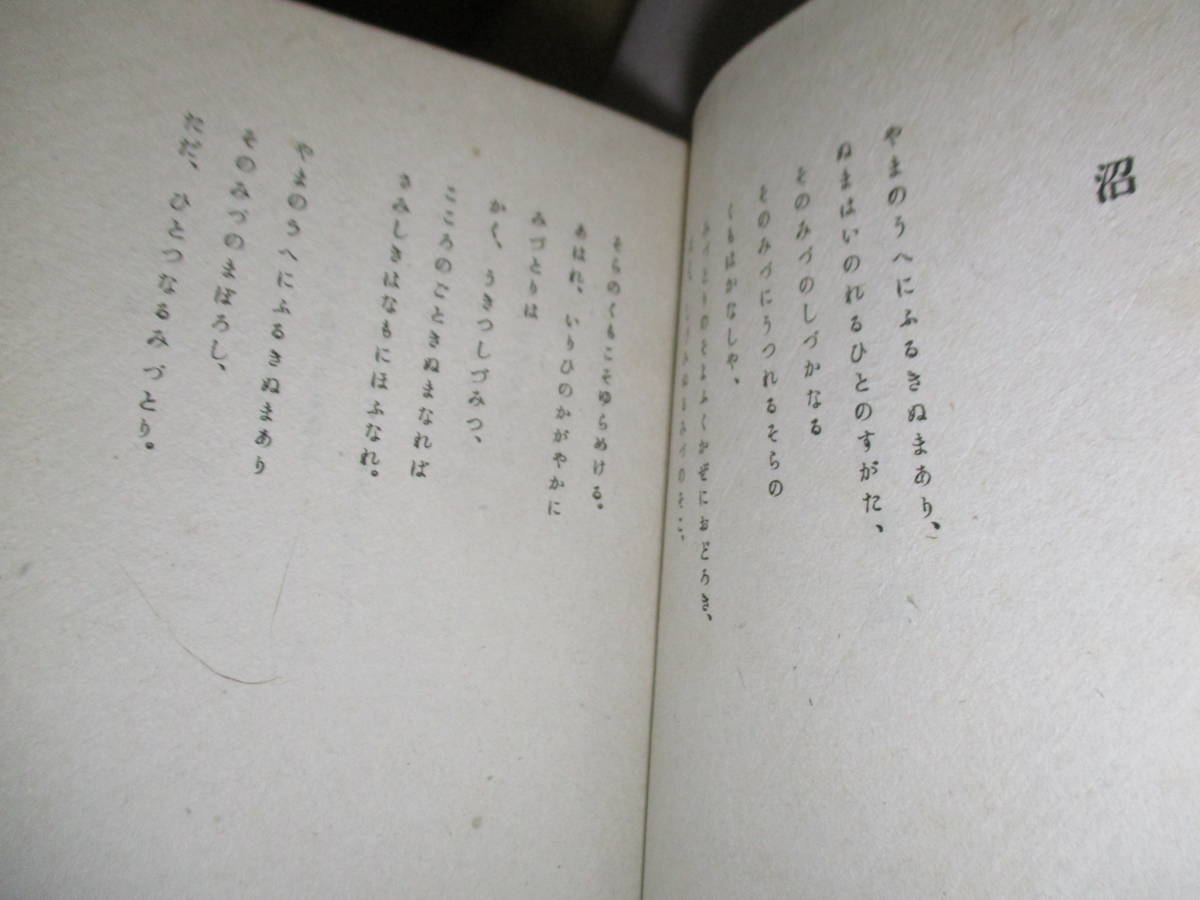 沼
やまのうへにふるきぬまあり、
ぬまはいのれるひとのすがた、
そのみづのしづかなる
そのみづにうつれるそらの
くもはかなしや、
みづとりのそよふくかぜにおどろき、
しづみぬるみづのそこ、
そらのくもこそゆらめける。
あはれ、いりひのかがやかに
みづとりは
かく、うきつしづみつ、
こころのごときぬまなれば
さみしきはなもにほふなれ。
やまのうへにふるきぬまあり
そのみづのまぼろし、
ただ、ひとつなるみづとり。